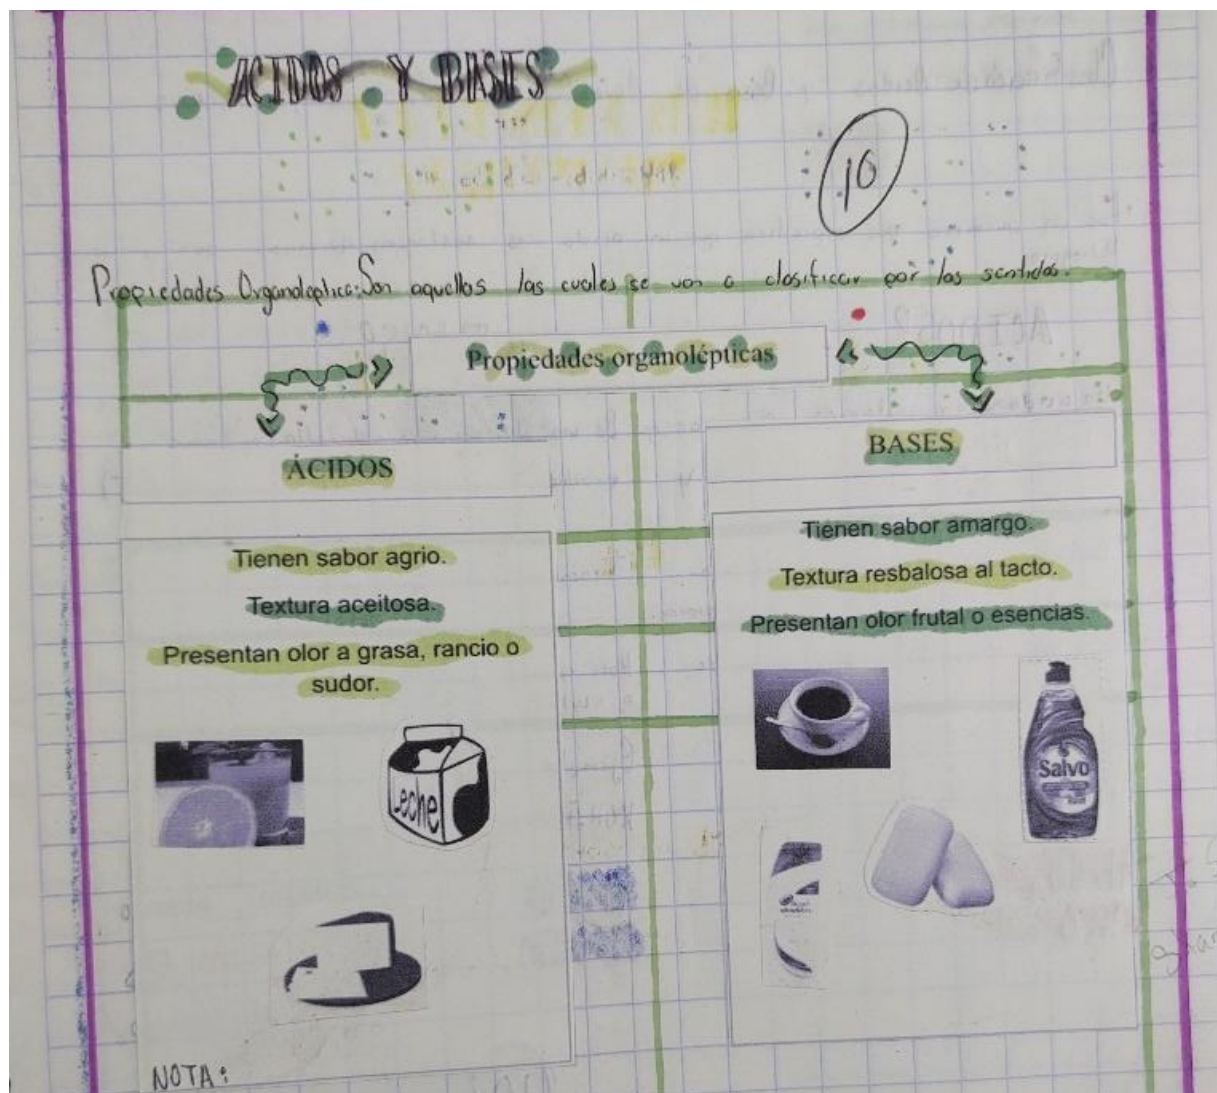 ACIDOS Y BASES
10
Propiedades Organoleptica: Son aquellas las cuales se van a clasificar por los sentidos.
Propiedades organolépticas
ÁCIDOS
BASES
Tienen sabor agrio.
Textura aceitosa.
Presentan olor a grasa, rancio o
sudor.
Leche
Tienen sabor amargo.
Textura resbalosa al tacto.
Presentan olor frutal o esencias.
Salvo
NOTA: